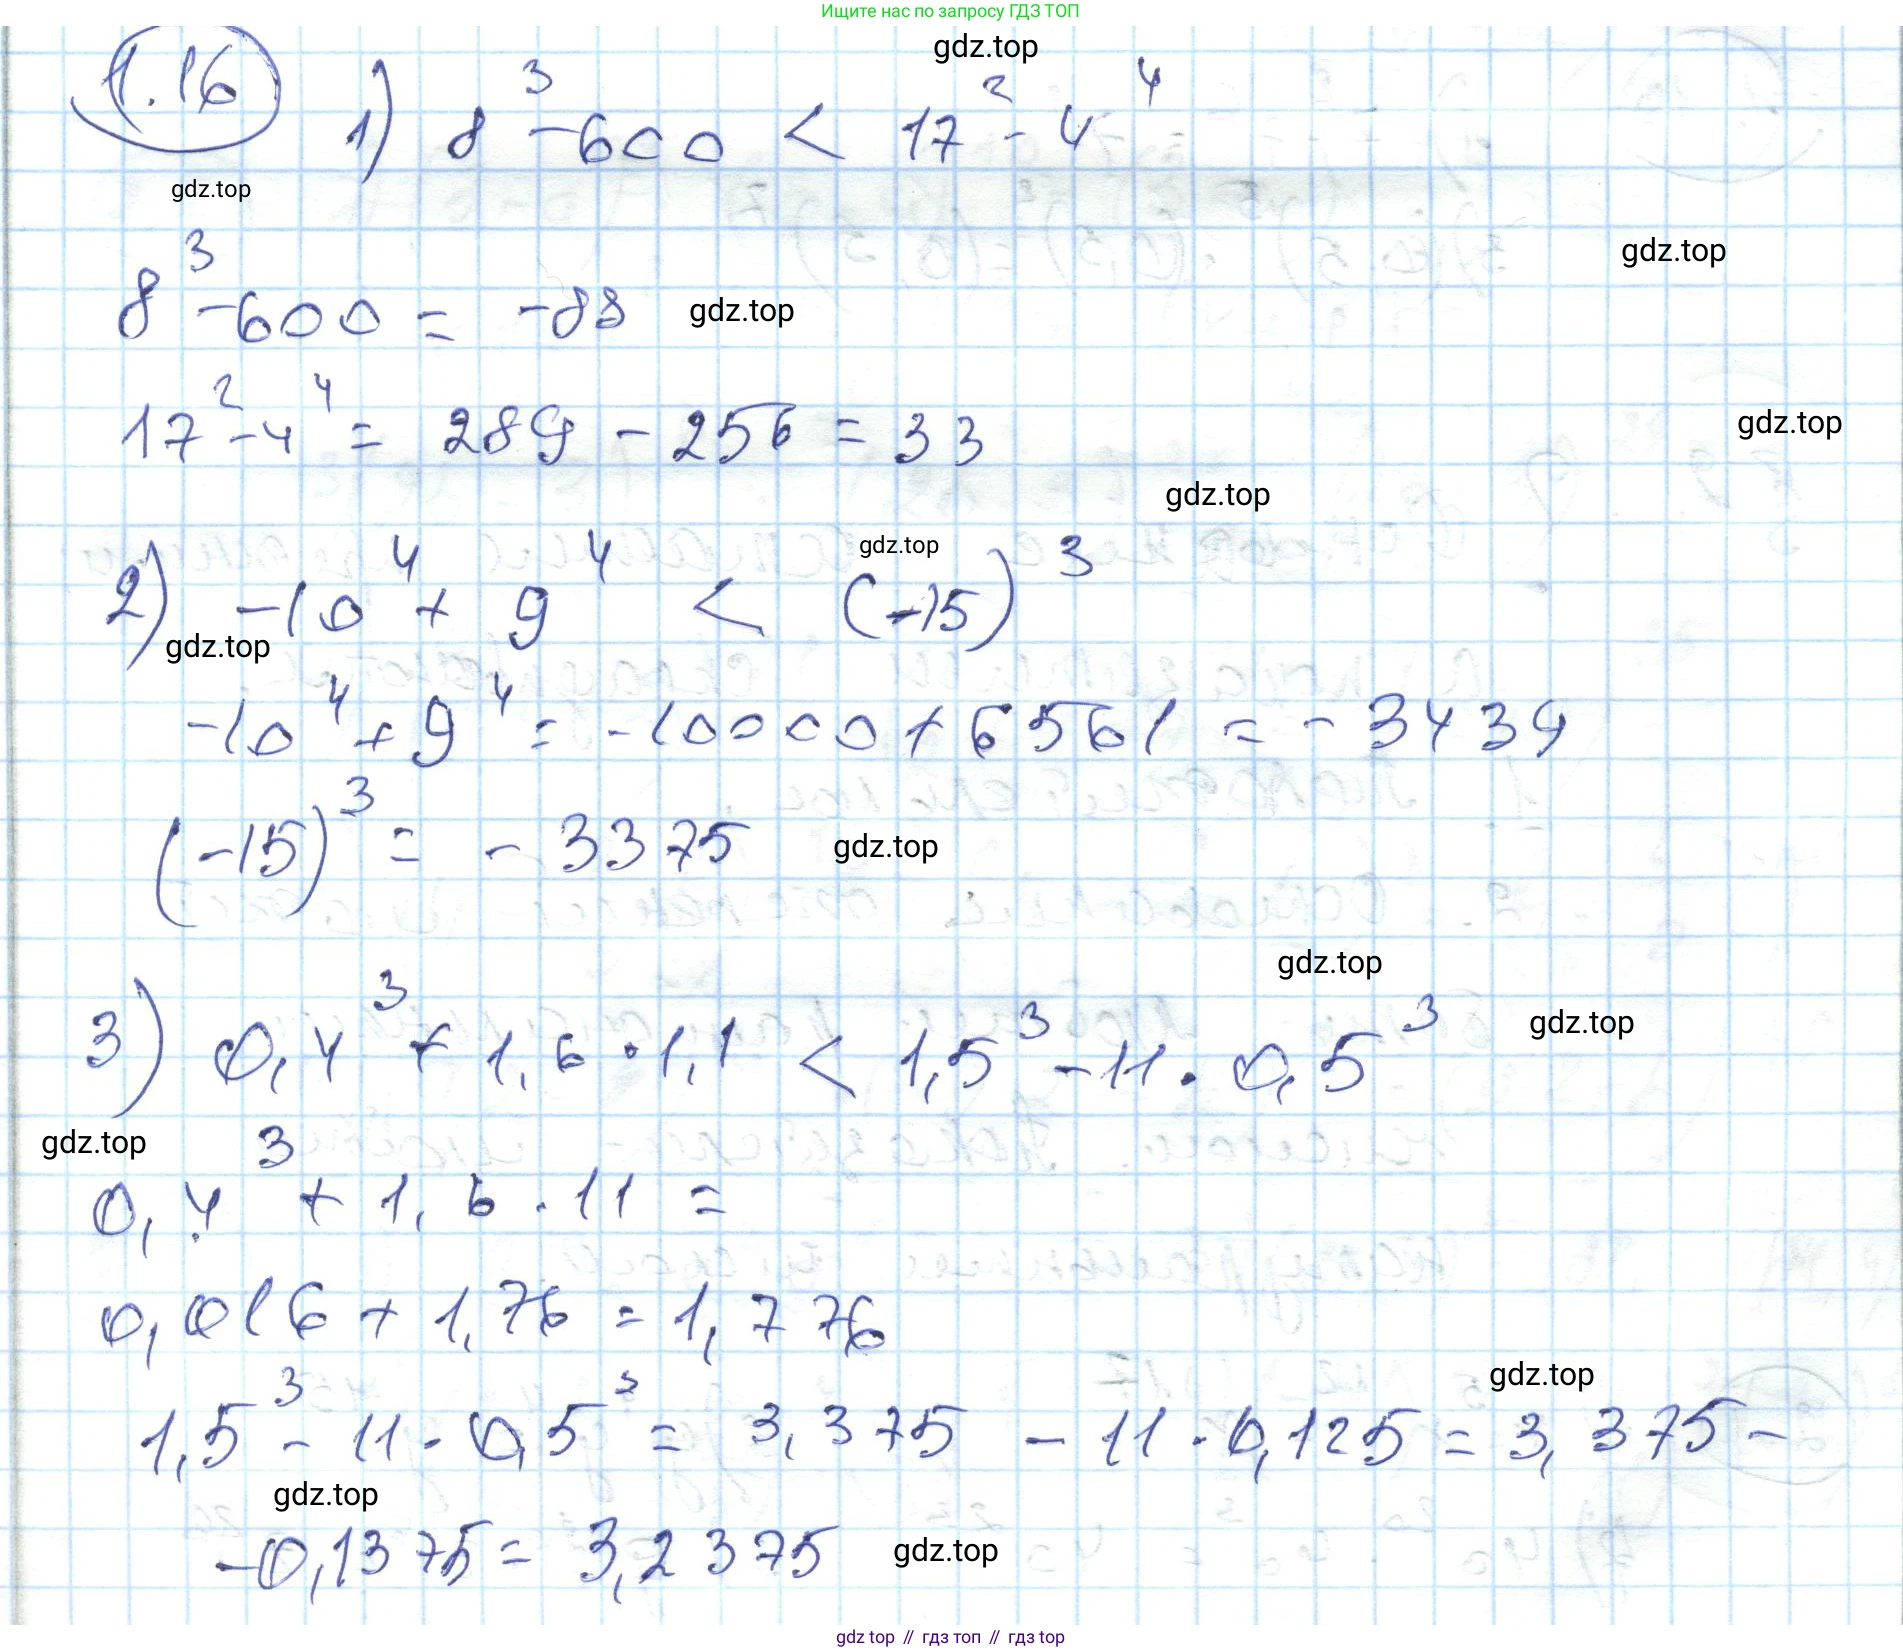 Ищите нас по запросу ГДЗ ТОП
gdz.top
1.16 1) 8³ - 600 < 17² - 4⁴
gdz.top
gdz.top
8³ - 600 = -88 gdz.top
17² - 4⁴ = 289 - 256 = 33
gdz.top
gdz.top
gdz.top
2) -10⁴ + 9⁴ < (-15)³
gdz.top
-10⁴ + 9⁴ = -10000 + 6561 = -3439
(-15)³ = -3375 gdz.top
gdz.top
gdz.top
3) 0,4³ + 1,6 · 1,1 < 1,5³ - 11 · 0,5³
gdz.top
0,4³ + 1,6 · 11 =
0,016 + 1,76 = 1,776
gdz.top
1,5³ - 11 · 0,5³ = 3,375 - 11 · 0,125 = 3,375 -
gdz.top
-0,1375 = 3,2375 gdz.top
gdz top // гдз топ // гдз top